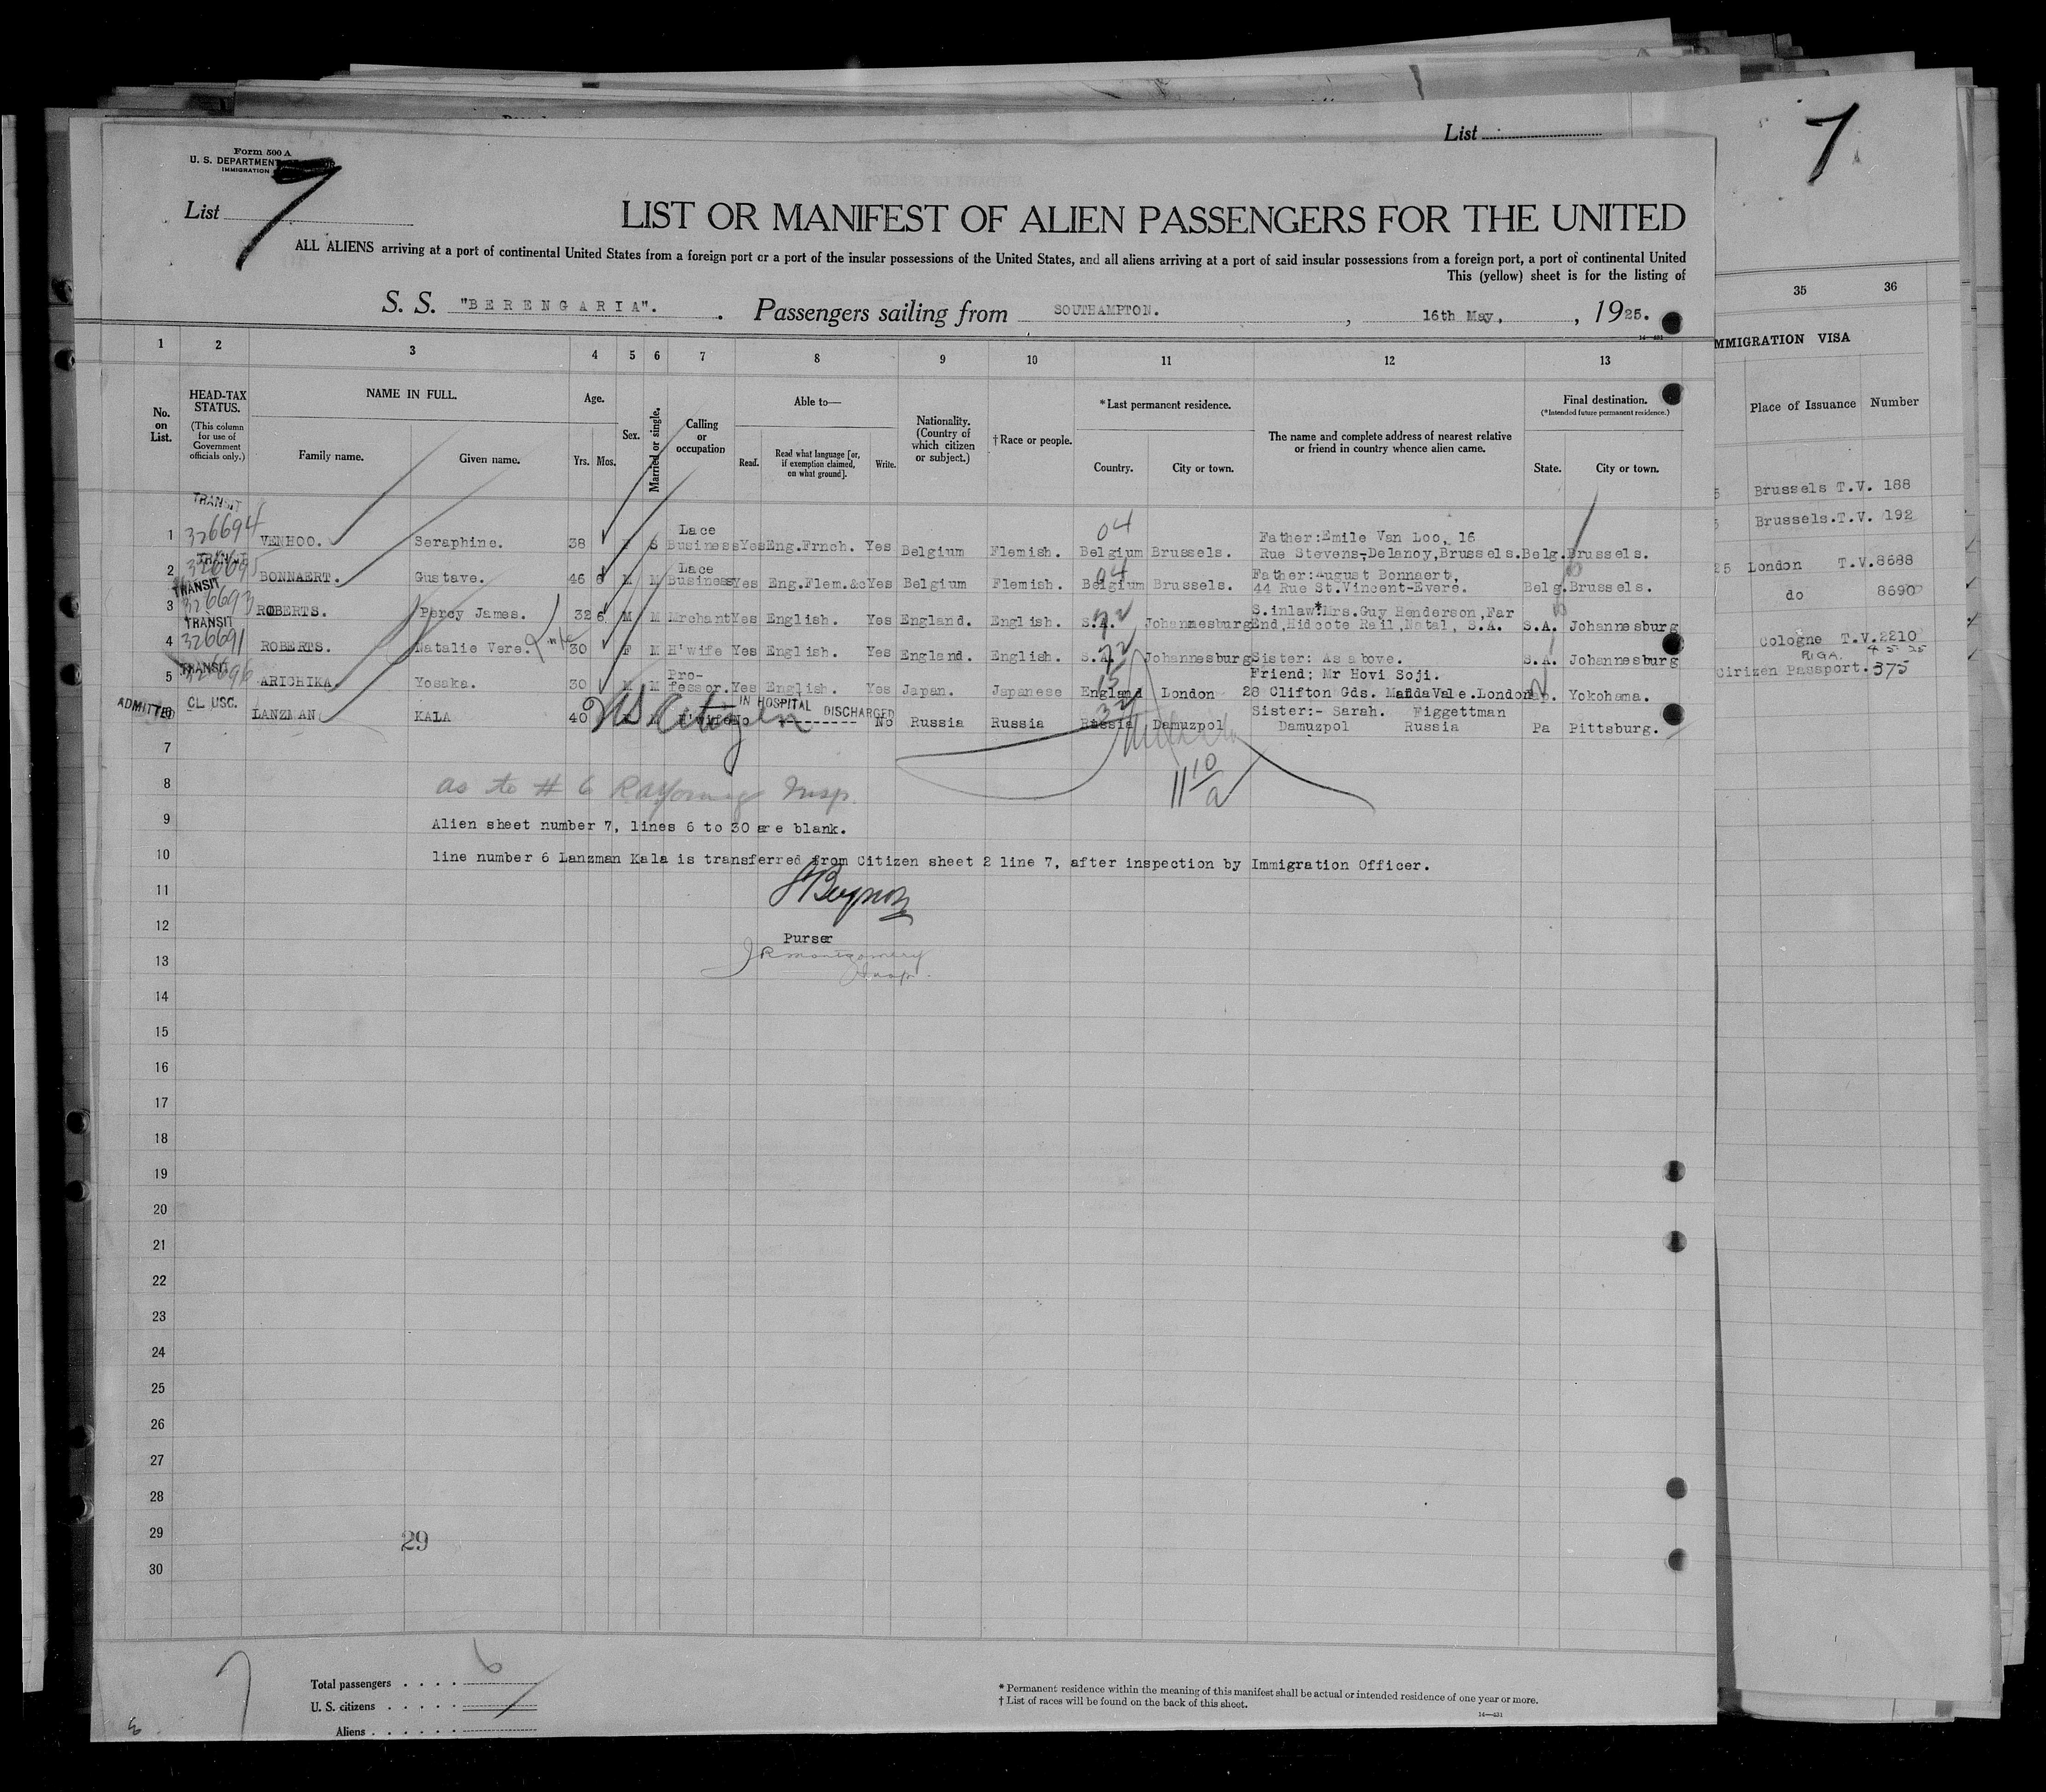 List
7
Form 500 A
U. S. DEPARTMENT
IMMIGRATION
List 7
LIST OR MANIFEST OF ALIEN PASSENGERS FOR THE UNITED
ALL ALIENS arriving at a port of continental United States from a foreign port or a port of the insular possessions of the United States, and all aliens arriving at a port of said insular possessions from a foreign port, a port of continental United
This (yellow) sheet is for the listing of
S. S. "BERENGARIA". Passengers sailing from SOUTHAMPTON. , 16th May, , 1925.
1 2 3 4 5 6 7 8 9 10 11 12 13 35 36
IMMIGRATION VISA
Place of Issuance Number
No. on List.
HEAD-TAX STATUS.
(This column for use of Government officials only.)
NAME IN FULL.
Family name. Given name.
Age.
Yrs. Mos.
Sex.
Married or single.
Calling or occupation
Able to—
Read. Read what language [or, if exemption claimed, on what ground]. Write.
Nationality. (Country of which citizen or subject.)
†Race or people.
*Last permanent residence.
Country. City or town.
The name and complete address of nearest relative or friend in country whence alien came.
Final destination.
(*Intended future permanent residence.)
State. City or town.
TRANSIT
1 326694 VENHOO. Seraphine. 38 F S Lace Business Yes Eng.Frnch. Yes Belgium Flemish. 04 Belgium Brussels. Father:Emile Van Loo, 16 Rue Stevens-Delanoy,Brussels. Belg. Brussels. Brussels T.V. 188
TRANSIT
2 326695 BONNAERT. Gustave. 46 6 M M Lace Business Yes Eng.Flem.&c Yes Belgium Flemish. 04 Belgium Brussels. Father:August Bonnaert, 44 Rue St.Vincent-Evere. Belg. Brussels. Brussels.T.V. 192
TRANSIT
3 326693 ROBERTS. Percy James. 32 6 M M Mrchant Yes English. Yes England. English. 72 S.A. Johannesburg S.inlaw:Mrs.Guy Henderson,Far End,Hidcote Rail,Natal, S.A. S.A. Johannesburg 25 London T.V.8688
TRANSIT
4 326691 ROBERTS. Natalie Vere. wife 30 F M H'wife Yes English. Yes England. English. 72 S.A. Johannesburg Sister: As above. S.A. Johannesburg do 8690
TRANSIT
5 326696 ARICHIKA. Yosaka. 30 M M Pro-fessor. Yes English. Yes Japan. Japanese 15 England London Friend: Mr Hovi Soji. 28 Clifton Gds. MaidaVale.London Jap. Yokohama. Cologne T.V.2210
ADMITTED CL USC.
6 LANZMAN KALA 40 US Citizen H'wife No IN HOSPITAL DISCHARGED No Russia Russia 32 Russia Damuzpol Sister:- Sarah. Figgettman Damuzpol Russia Pa Pittsburg. RIGA. 4 5 25 Citizen Passport. 375
7
11 10/a
8
as to # 6 RAYoung Insp.
9
Alien sheet number 7, lines 6 to 30 are blank.
10
line number 6 Lanzman Kala is transferred from Citizen sheet 2 line 7, after inspection by Immigration Officer.
11
12
Purser
13
JR Montgomery
Insp.
14
15
16
17
18
19
20
21
22
23
24
25
26
27
28
29
29
30
6
7
Total passengers
U. S. citizens
Aliens
* Permanent residence within the meaning of this manifest shall be actual or intended residence of one year or more.
† List of races will be found on the back of this sheet.
14—431